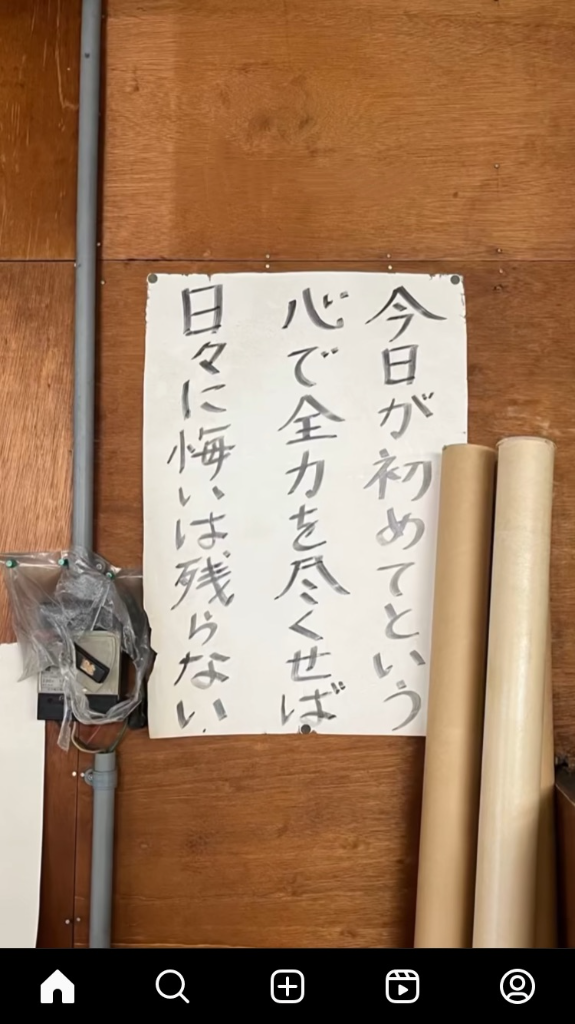 今日が初めてという
心で全力を尽くせば
日々に悔いは残らない